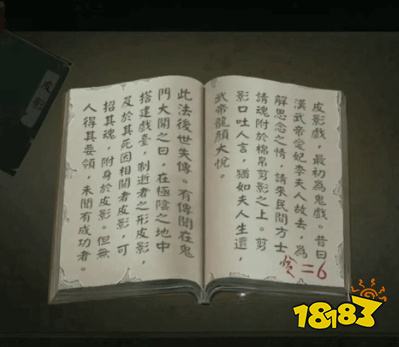 皮影戲，最初為鬼戲。昔日
漢武帝愛妃李夫人故去，為
解思念之情，請來民間方士
請魂附於棉帛剪影之上。剪
影口吐人言，猶如夫人生還，
武帝龍顏大悅。
=6
此法後世失傳。有傳聞在鬼
門大開之日，在極陰之地中
搭建戲臺，制逝者之形皮影
及於其死因相關者皮影，可
招其魂，附身於皮影。但無
人得其要領，未聞有成功者。
皮影
18183